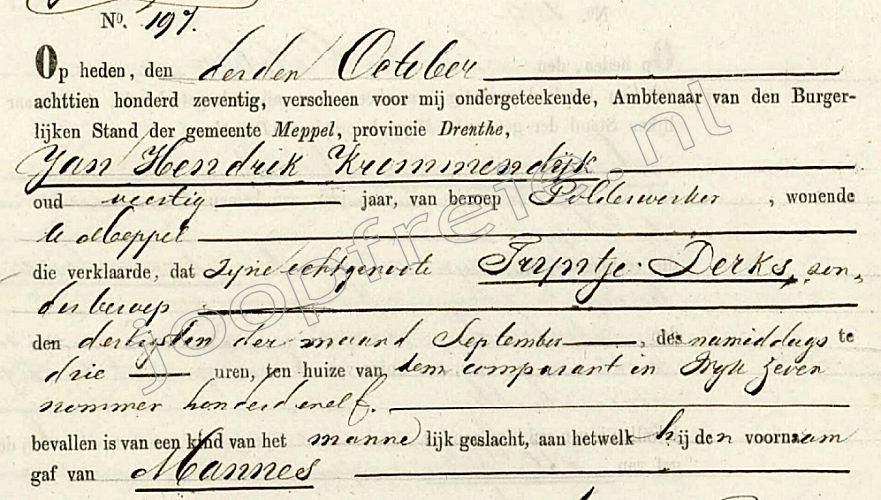 No. 197.
Op heden, den derden October
achttien honderd zeventig, verscheen voor mij ondergeteekende, Ambtenaar van den Burger-
lijken Stand der gemeente Meppel, provincie Drenthe,
Jan Hendrik Krommendijk
oud veertig jaar, van beroep Polderwerker, wonende
te Meppel
die verklaarde, dat zijne echtgenoote Trijntje Derks, zon-
der beroep
den dertigsten der maand September, des namiddags te
drie uren, ten huize van hem comparant in Wijk zeven
nommer honderd en elf.
bevallen is van een kind van het mannelijk geslacht, aan hetwelk hij den voornaam
gaf van Mannes
joopfreie.nl